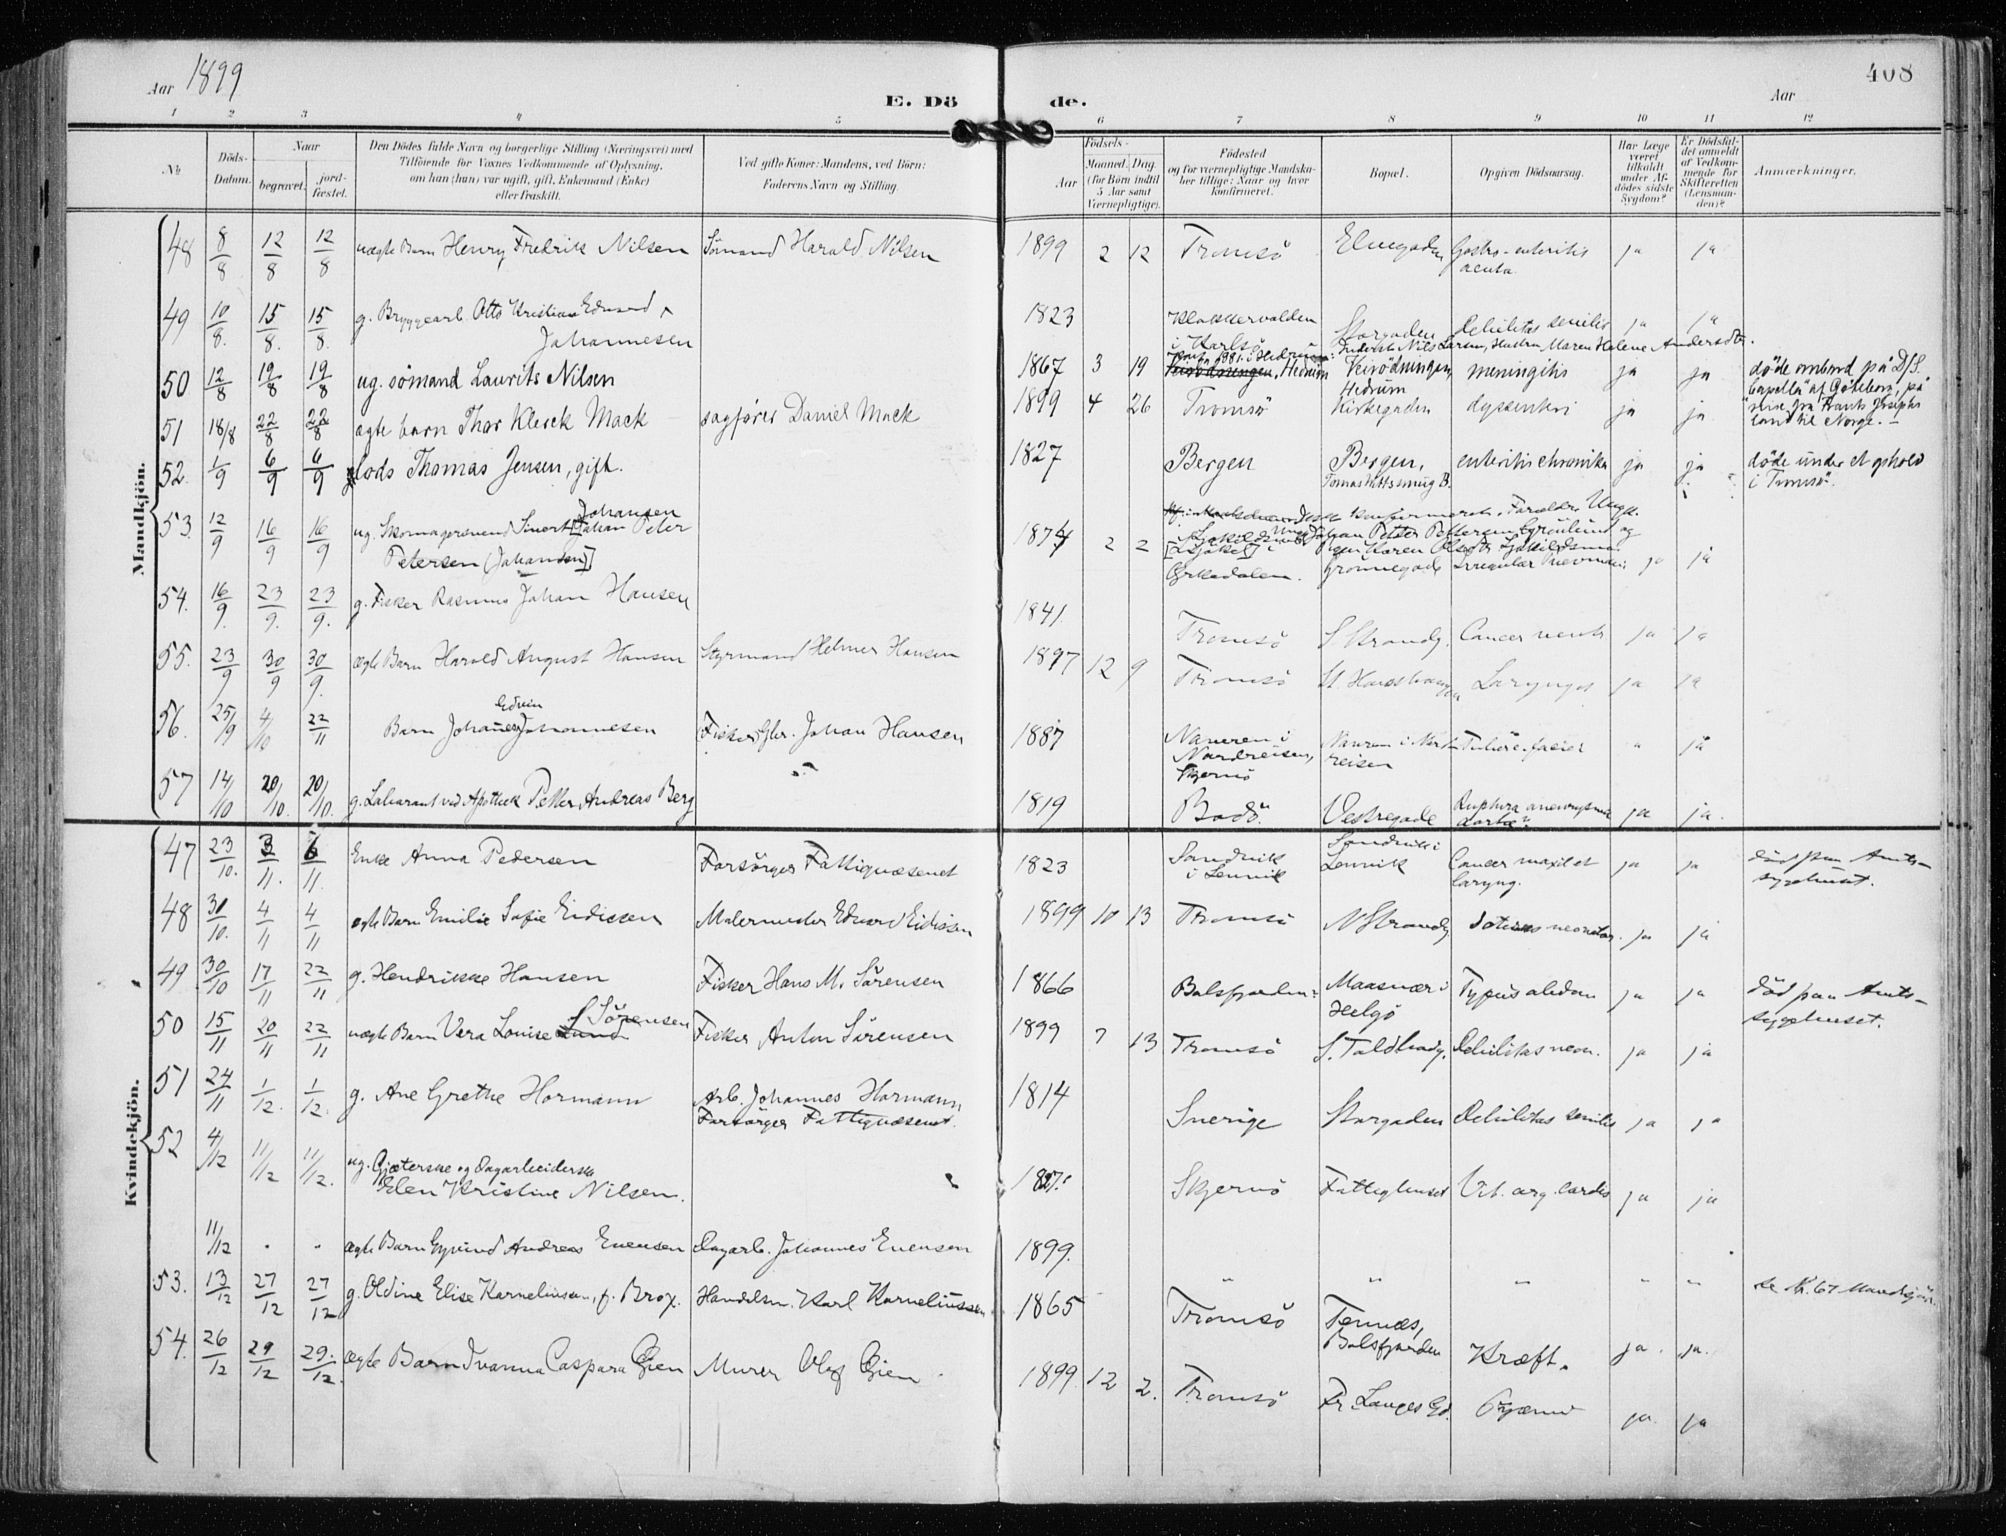 Aar 1899
E. Döde.
Aar
408
1 2 3 4 5 6 7 8 9 10 11 12
No.
Döds-Datum.
Naar
begravet.
jord-fæstet.
Den Dödes fulde Navn og borgerlige Stilling (Næringsvei) med
Tilföiende for Voxnes Vedkommende af Oplysning,
om han (hun) var ugift, gift, Enkemand (Enke)
eller fraskilt.
Ved gifte Koner: Mandens, ved Börn:
Faderens Navn og Stilling.
Födsels-
Aar
Maaned. Dag.
(for Börn indtil
5 Aar samt
Værnepligtige).
Födested
og for værnepligtige Mandskaber tillige: Naar og hvor
konfirmeret.
Bopæl.
Opgiven Dödsaarsag.
Har Læge
været
tilkaldt
under Afdödes sidste
Sygdom?
Er Dödsfaldet anmeldt
af Vedkommende for
Skifteretten
(Lensmanden)?
Anmærkninger.
Mandkjön.
48 8/8 12/8 12/8 uægte Barn Henry Fredrik Nilsen Sömand Harald Nilsen 1899 2 12 Tromsö Elvegaden Gastro-enteritis acuta ja ja
49 10/8. 15/8. 15/8. g. Bryggearb. Otto Kristian Edvard Johannesen 1823 i Karlsö Storgaden Debilitas senilis ja ja
Nils Larsen, Hustru Maren Helene Andersdtr.
50 12/8 19/8 19/8 ug. sömand Laurits Nilsen 1867 3 19 Hedrum Hedrum meningitis ja ja döde ombord på D/S. "Capella" af Göteborg, på reise fra Frants Josephs land til Norge.
51 18/8 22/8 22/8 ægte barn Thor Klerck Mack sagförer Daniel Mack 1899 4 26 Tromsö Kirkegaden dyssenteri ja ja
52. 1/9 6/9 6/9 lods Thomas Jensen, gift. 1827 Bergen Bergen, enteritis chronika ja ja döde under et ophold i Tromsö.
53. 12/9 16/9 16/9 ug. Skomagersvend Johan Peter Johansen Petersen [Johansen] 1874 2 2 Orkedalen. Grönnegade Irregulær Pneumoni ja ja
54. 16/9. 23/9. 23/9. g. Fisker Rasmus Johan Hansen 1841. Tromsö S. Strandg. Cancer ventr. ja ja
55. 23/9 30/9 30/9. ægte Barn Harald August Hansen Styrmand Helmer Hansen 1897 12 9 Tromsö Laryngit ja ja
56. 25/9 4/10 22/11 Barn Johannes Edvin Johannesen Fisker Johan Hansen 1887 i Nordreisen, Skjervö ja
57 14/10 20/10. 20/10. g. Laborant ved Apothek Petter Andreas Berg 1819 Bodö. Vestregade Ruptura aneurysma aortæ? ja ja.
Kvindekjön.
47 23/10. 3/11. 6/11. Enke Anna Pedersen Forsörges Fattigvæsenet 1823 Sandvik i Lenvik Sandvik i Lenvik Cancer maxil et laryng. ja ja död paa Amts-sygehuset.
48 30/10. 4/11 4/11 ægte Barn Emilie Sofie Eidissen Malermester Edvard Eidissen 1899 10 13 Tromsö N Strandg neonator. ja ja
49 30/10 17/11 22/11 g. Hendrikke Hansen Fisker Hans M. Sörensen 1866 Balsfjorden Maasvær i Helgö Typus abdom ja ja död paa Amts-sygehuset.
50 15/11 20/11 22/11 uægte Barn Vera Louise Lund Sörensen Fisker Anton Sörensen 1899 7 13 Tromsö S. Toldbodg. Debilitas neon. ja ja
51 24/11 1/12. 1/12. g. Ane Grethe Hormann Arb. Johannes Hormann Forsörges Fattigvæsenet. 1814 Sverige Storgaden Debilitas senilis ja ja
52 4/12 11/12 11/12. ug. Gjæterske og Dagarbeiderske Elen Kristine Nilsen. 1827. Skjervö Fattighuset Vit. org. cordis ja ja
11/12 " " ægte Barn Eyvind Andreas Evensen Dagarb. Johannes Evensen 1899. " " " " " se N. 67 Mandkjön.
53. 13/12 27/12 27/12 g. Oldine Elise Korneliussen, f. Brox. Handelsm. Karl Korneliussen 1865 Tromsö Tennæs, Balsfjorden Kræft. ja. ja.
54. 26/12 29/12 29./12. ægte Barn Ivanna Caspara Gjen Murer Olof Gjen 1899 12 2. Tromsö Fr. Langes Gd. ja. ja